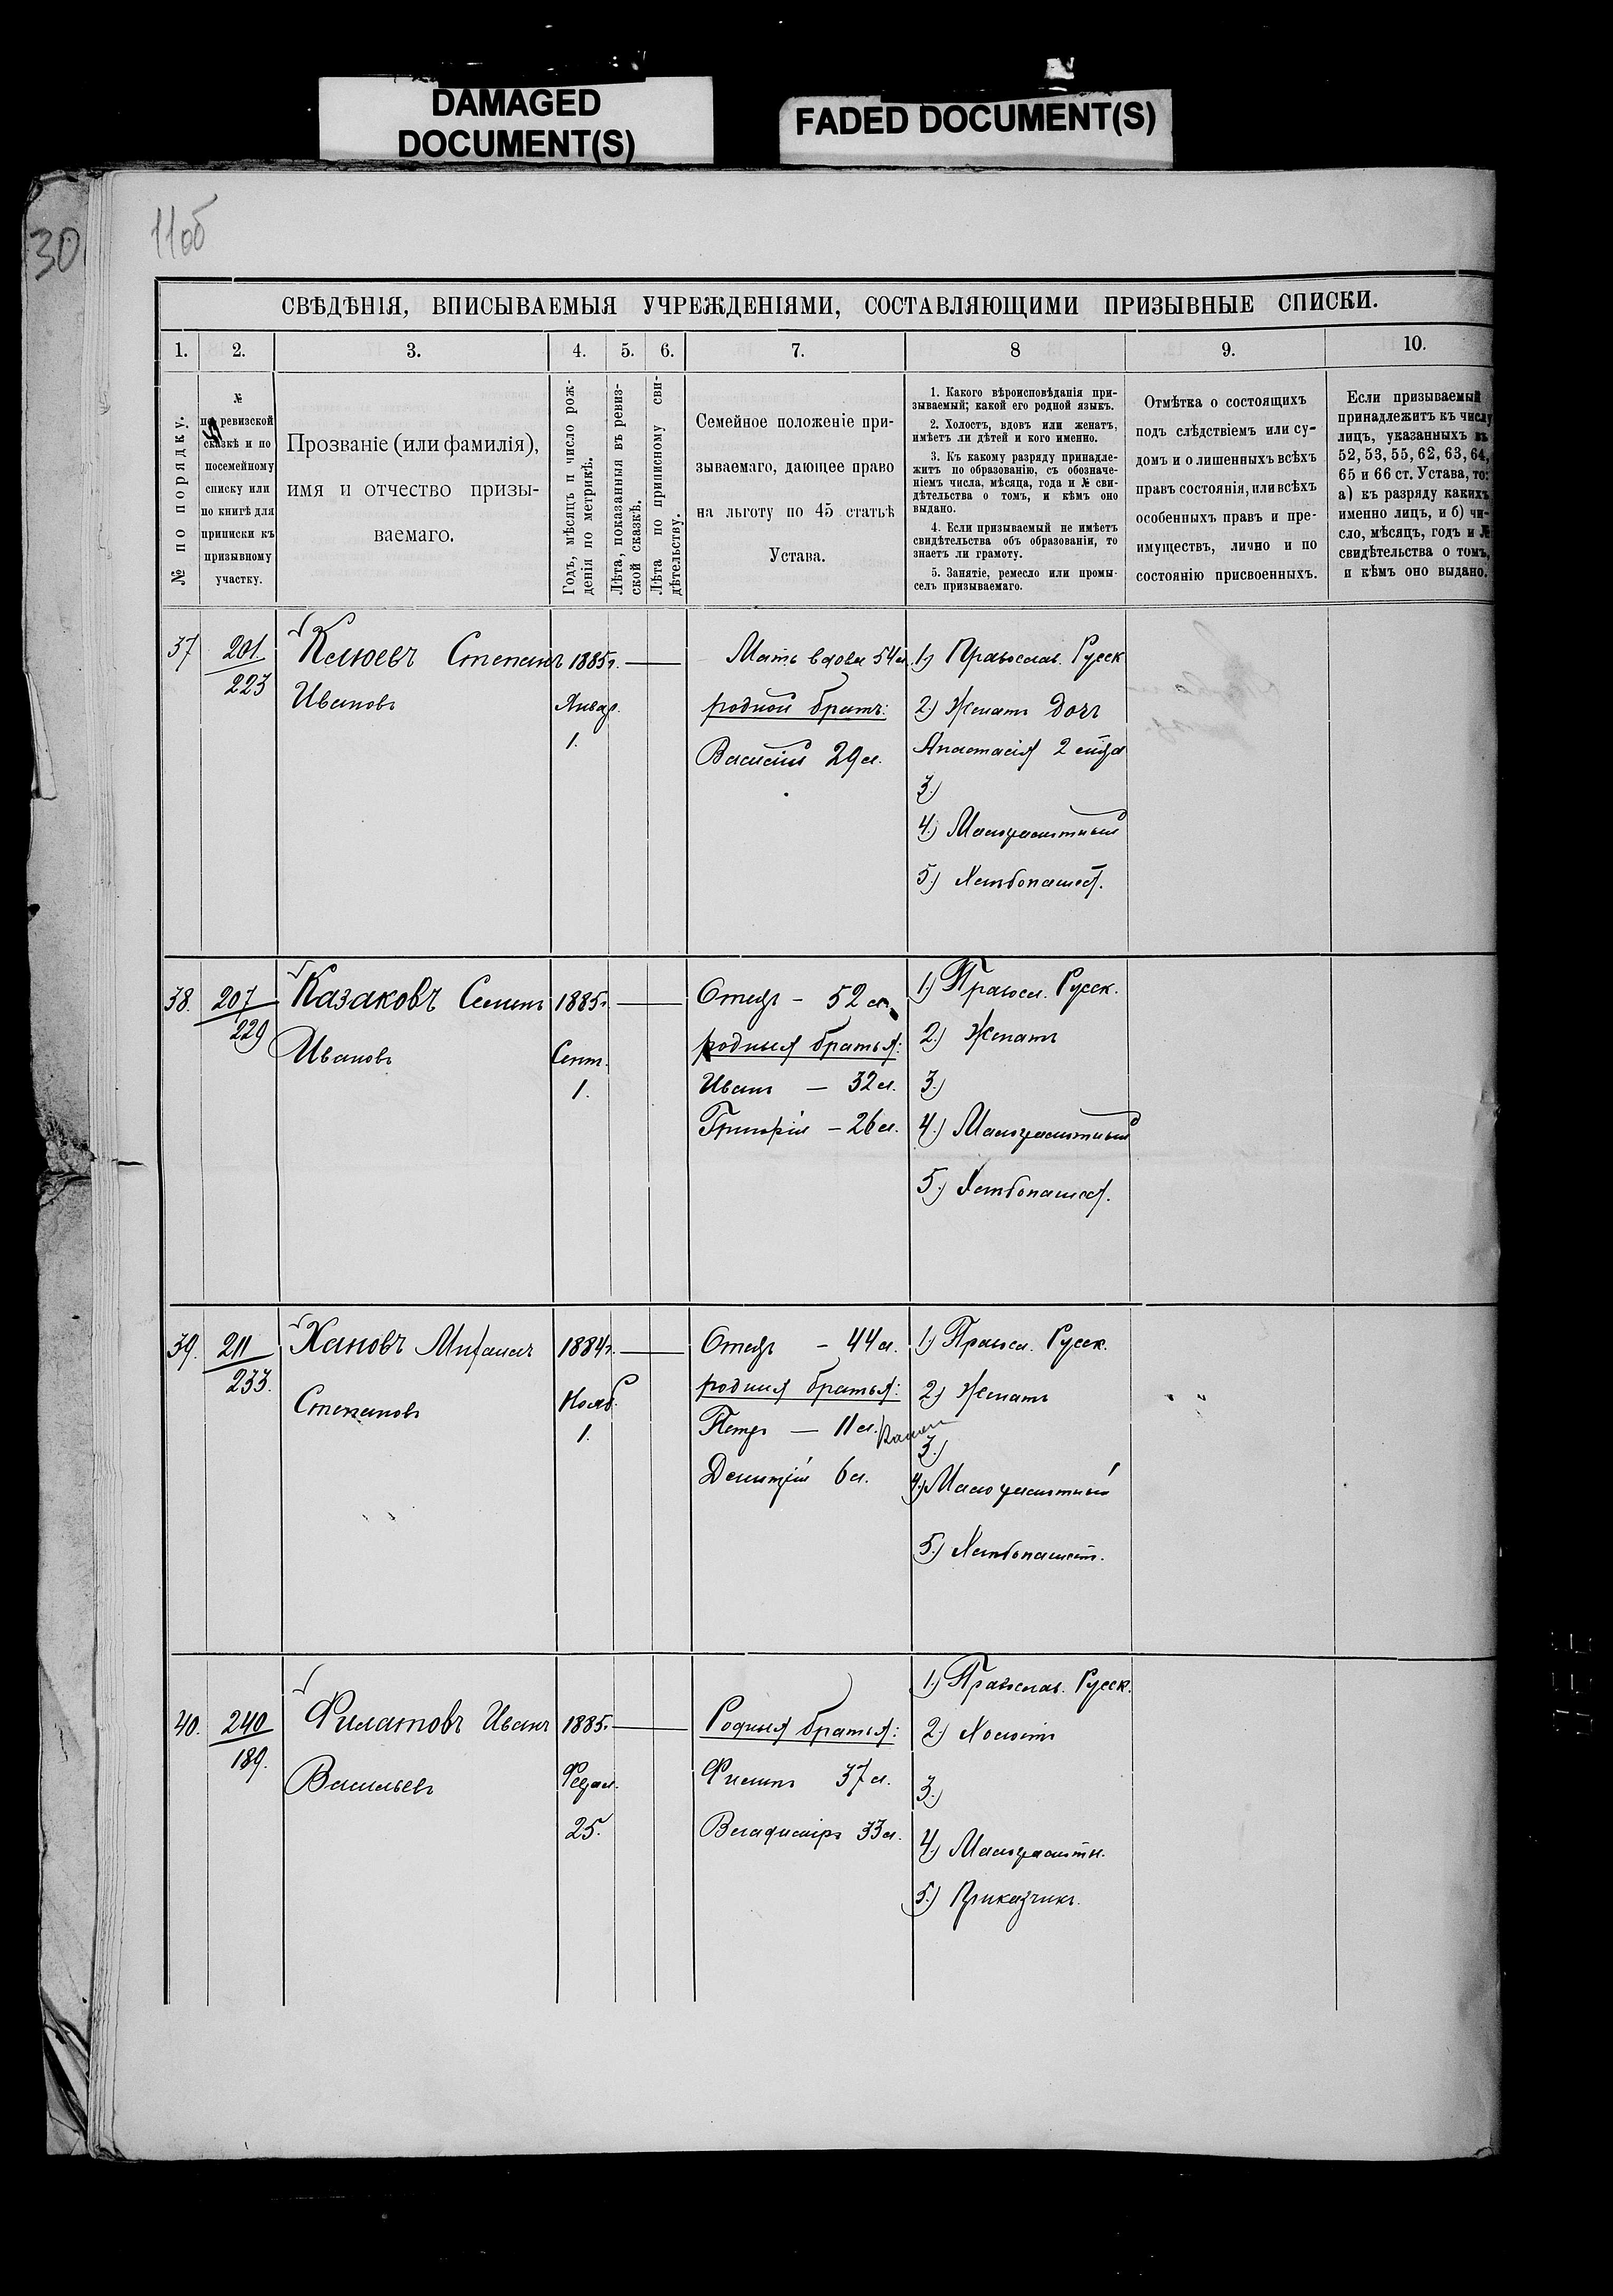 DAMAGED
DOCUMENT(S)
FADED DOCUMENT(S)
30
11об
СВѢДѢНІЯ, ВПИСЫВАЕМЫЯ УЧРЕЖДЕНІЯМИ, СОСТАВЛЯЮЩИМИ ПРИЗЫВНЫЕ СПИСКИ.
1. 2. 3. 4. 5. 6. 7. 8 9. 10.
№ по порядку.
№
по ревизской
сказкѣ и по
посемейному
списку или
по книгѣ для
приписки къ
призывному
участку.
Прозваніе (или фамилія),
имя и отчество призы-
ваемаго.
Годъ, мѣсяцъ и число рож-
денія по метрикѣ.
Лѣта, показанныя въ ревиз-
ской сказкѣ.
Лѣта по приписному сви-
дѣтельству.
Семейное положеніе при-
зываемаго, дающее право
на льготу по 45 статьѣ
Устава.
1. Какого вѣроисповѣданія при-
зываемый; какой его родной языкъ.
2. Холостъ, вдовъ или женатъ,
имѣетъ ли дѣтей и кого именно.
3. Къ какому разряду принадле-
житъ по образованію, съ обозначе-
ніемъ числа, мѣсяца, года и № сви-
дѣтельства о томъ, и кѣмъ оно
выдано.
4. Если призываемый не имѣетъ
свидѣтельства объ образованіи, то
знаетъ ли грамоту.
5. Занятіе, ремесло или промы-
селъ призываемаго.
Отмѣтка о состоящихъ
подъ слѣдствіемъ или су-
домъ и о лишенныхъ всѣхъ
правъ состоянія, или всѣхъ
особенныхъ правъ и пре-
имуществъ, лично и по
состоянію присвоенныхъ.
Если призываемый
принадлежитъ къ числу
лицъ, указанныхъ въ
52, 53, 55, 62, 63, 64,
65 и 66 ст. Устава, то:
а) къ разряду какихъ
именно лицъ, и б) чи-
сло, мѣсяцъ, годъ и №
свидѣтельства о томъ,
и кѣмъ оно выдано.
37
201
223
Клюевъ Степанъ
Ивановъ
1885г.
Январ.
1.
Мать вдова 54 л.
родной братъ:
Василій 29 л.
1) Православ. Русск
2) Женатъ дочь
Анастасія 2
3)
4) Малограмотный
5) Хлѣбопашец.
38.
207
229
Казаковъ Семенъ
Ивановъ
1885г.
Сент.
1.
Отецъ - 52 л.
родныя братья:
Иванъ — 32 л.
Григорій — 26 л.
1) Правосл. Русск.
2) Женатъ
3)
4) Малограмотный
5) Хлѣбопашец.
39.
211
233.
Хановъ Михаилъ
Степановъ
1884г.
Нояб.
1.
Отецъ - 44 л.
родныя братья:
Петръ — 11 л.
Дмитрій 6 л.
1) Правосл. Русск.
2) Женатъ
3)
4) Малограмотный
5) Хлѣбопашест.
40.
240
189.
Филатовъ Иванъ
Васильевъ
1885г.
Феврал.
25.
Родныя братья:
Филипъ 37 л.
Владимиръ 33 л.
1) Православ. Русск.
2) Холостъ
3)
4) Малограмотн.
5) Приказчикъ.